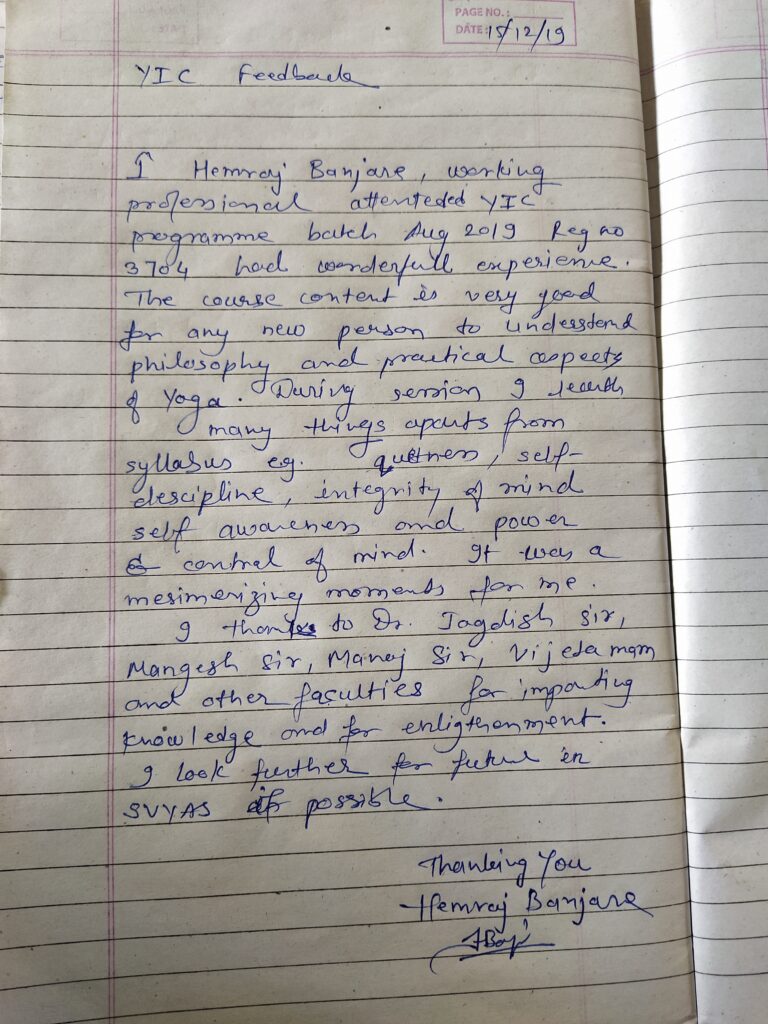 PAGE NO.:
DATE: 15/12/19
YIC Feedback
I Hemraj Banjare, working
professional attenteded YIC
programme batch Aug 2019 Reg no
3704 had wonderfull experience.
The course content is very good
for any new person to understand
philosophy and practical aspects
of Yoga. During session I learnth
many things aparts from
syllabus eg. quetness, self-
descipline, integrity of mind
self awareness and power
& control of mind. It was a
mesimerizing moments for me.
I thanks to Dr. Jagdish sir,
Mangesh Sir, Manoj Sir, Vijeta mam
and other faculties for imparting
knowledge and for enligthenment.
I look further for future in
SVYAS if possible.
Thanking You
Hemraj Banjare